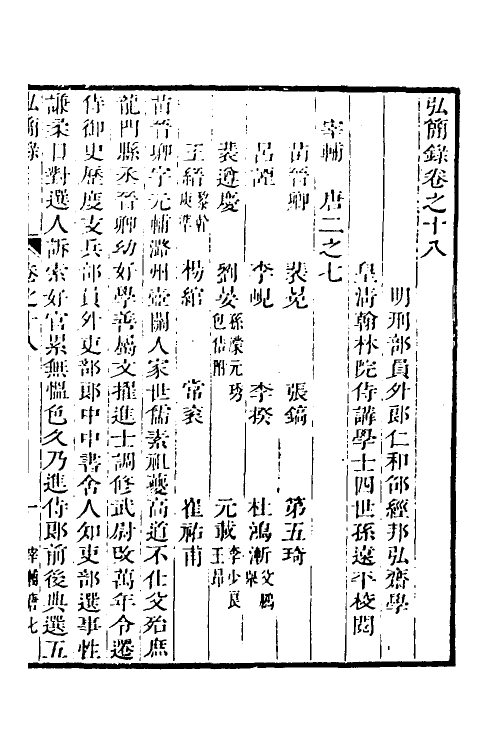 弘簡錄卷之十八
明刑部員外郎仁和邵經邦弘齋學
皇清翰林院侍講學士四世孫遠平校閱
宰輔 唐二之七
苗晉卿 裴冕 張鎬 第五琦
呂諲 李峴 李揆 杜鴻漸
裴遵慶 劉晏孫濛元琇包佶附 元載李少良王昂
王縉黎幹庾準 楊綰 常袞 崔祐甫
苗晉卿字元輔潞州壺關人家世儒素祖夔高道不仕父殆庶
龍門縣丞晉卿幼好學善屬文擢進士調修武尉改萬年令遷
侍御史歷度支兵部員外吏部郎中中書舍人知吏部選事性
謙柔日對選人訴索好官累無慍色久乃進侍郎前後典選五
弘簡錄 卷之十八 一 宰輔唐七